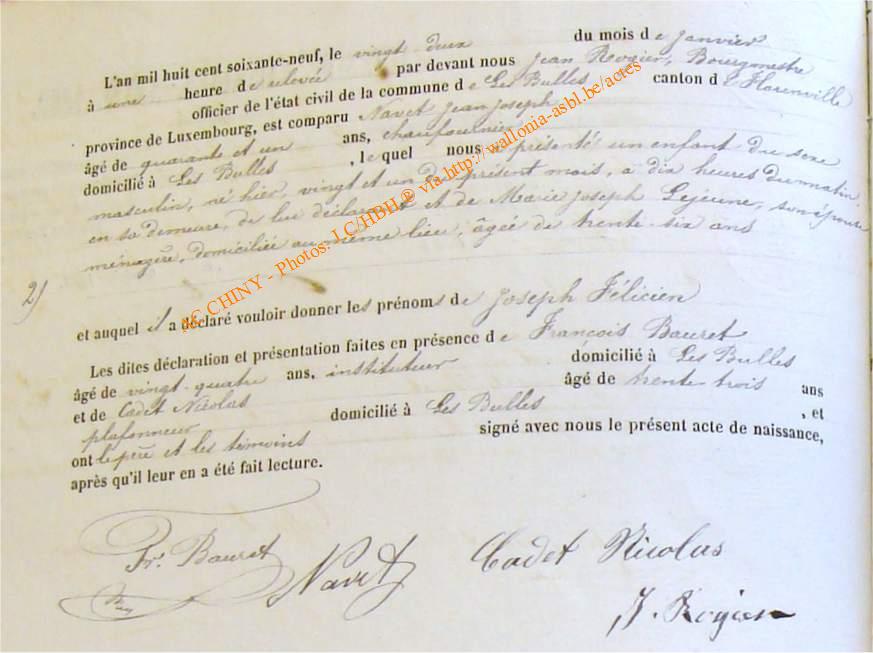 L'an mil huit cent soixante-neuf, le vingt deux du mois de janvier
à une heure de relevée par devant nous Jean Rogier, Bourgmestre
officier de l'état civil de la commune de Les Bulles canton de Florenville
province de Luxembourg, est comparu Navet Jean Joseph
âgé de quarante et un ans, chaufournier
domicilié à Les Bulles, lequel nous a présenté un enfant du sexe
masculin, né hier, vingt et un du présent mois, à dix heures du matin
en sa demeure, de lui déclarant et de Marie Joseph Lejeune, son épouse
ménagère, domiciliée au même lieu, âgée de trente-six ans
2)
et auquel il a déclaré vouloir donner les prénoms de Joseph Félicien
Les dites déclaration et présentation faites en présence de François Bauret
âgé de vingt-quatre ans, instituteur domicilié à Les Bulles
et de Cadet Nicolas âgé de trente trois ans
plafonneur domicilié à Les Bulles, et
ont le père et les témoins signé avec nous le présent acte de naissance,
après qu'il leur en a été fait lecture.
Fr. Bauret Navet Cadet Nicolas
J. Rogier
AC CHINY - Photos: J.C/HBH® via http://wallonia-asbl.be/actes